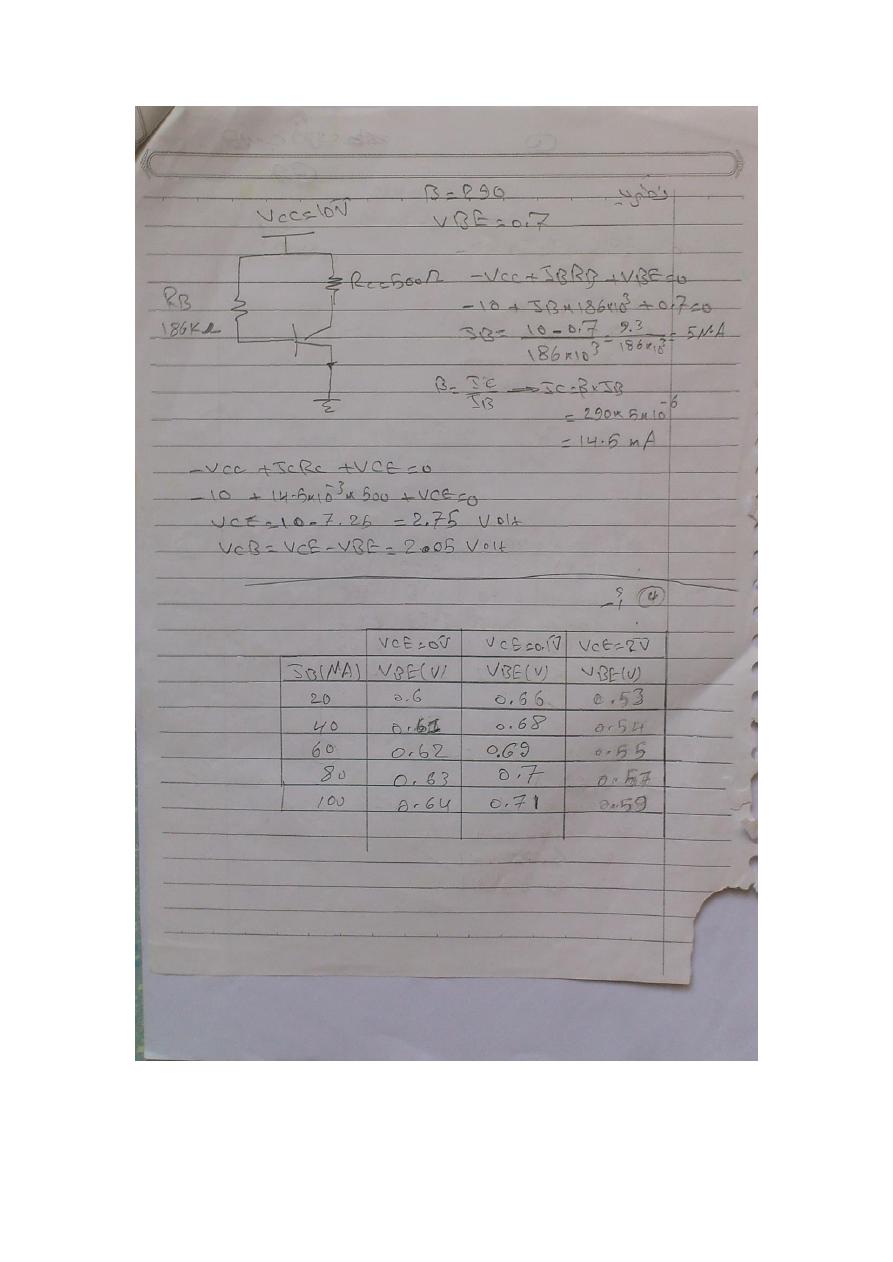 β=290
VBE=0.7
VCC=10V
RC=500Ω
-VCC+IBRB+VBE=0
RB
186KΩ
-10+IB×186×10³+0.7=0
IB= 10-0.7 / 186×10³ = 9.3 / 186×10³ = 5MA
β= IC / IB → IC=β×IB
= 290×5×10⁻⁶
= 14.5 mA
-VCC+ICRC+VCE=0
-10+14.5×10⁻³×500+VCE=0
VCE=10-7.25=2.75 Volt
VCB=VCE-VBE=2.05 Volt
4
VCE=0V VCE=0.1V VCE=2V
IB(MA) VBE(V) VBE(V) VBE(V)
20 0.6 0.66 0.53
40 0.61 0.68 0.54
60 0.62 0.69 0.55
80 0.63 0.7 0.57
100 0.64 0.71 0.59